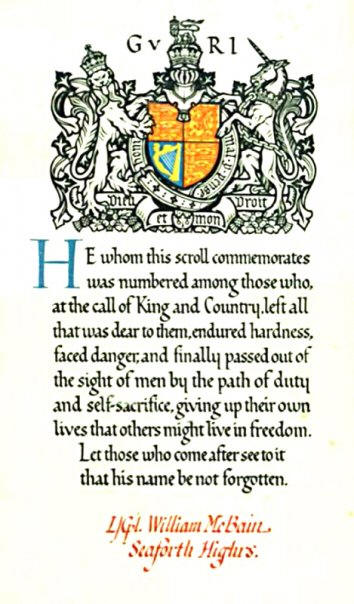 G V R I
Honi soit qui mal y pense
Dieu et mon Droit
HE whom this scroll commemorates
was numbered among those who,
at the call of King and Country, left all
that was dear to them, endured hardness,
faced danger, and finally passed out of
the sight of men by the path of duty
and self-sacrifice, giving up their own
lives that others might live in freedom.
Let those who come after see to it
that his name be not forgotten.
L/Cpl. William McBain
Seaforth Highrs.